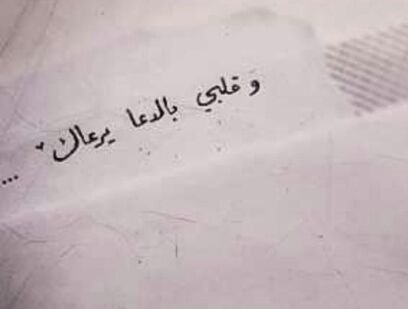 و قلبي بالدعا يرعاك ...